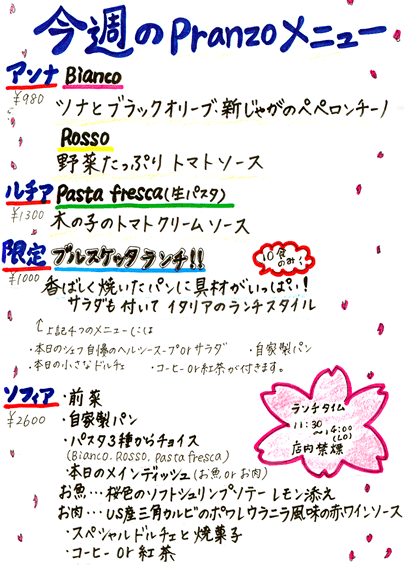 今週のPranzoメニュー
アンナ Bianco
¥980
ツナとブラックオリーブ・新じゃがのペペロンチーノ
Rosso
野菜たっぷりトマトソース
ルチア Pasta fresca(生パスタ)
¥1300
木の子のトマトクリームソース
限定 ブルスケッタランチ!!
10食のみ!
¥1000
香ばしく焼いたパンに具材がいっぱい!
サラダも付いてイタリアのランチスタイル
上記4つのメニューには
・本日のシェフ自慢のヘルシースープorサラダ ・自家製パン
・本日の小さなドルチェ ・コーヒーor紅茶が付きます。
ソフィア ・前菜
¥2600
・自家製パン
・パスタ3種からチョイス
(Bianco. Rosso. Pasta fresca)
・本日のメインディッシュ(お魚orお肉)
お魚…桜色のソフトシュリンプソテー レモン添え
お肉…US産三角カルビのポワレウラニラ風味の赤ワインソース
・スペシャルドルチェと焼菓子
・コーヒーor紅茶
ランチタイム
11:30
〜14:00
(LO)
店内禁煙